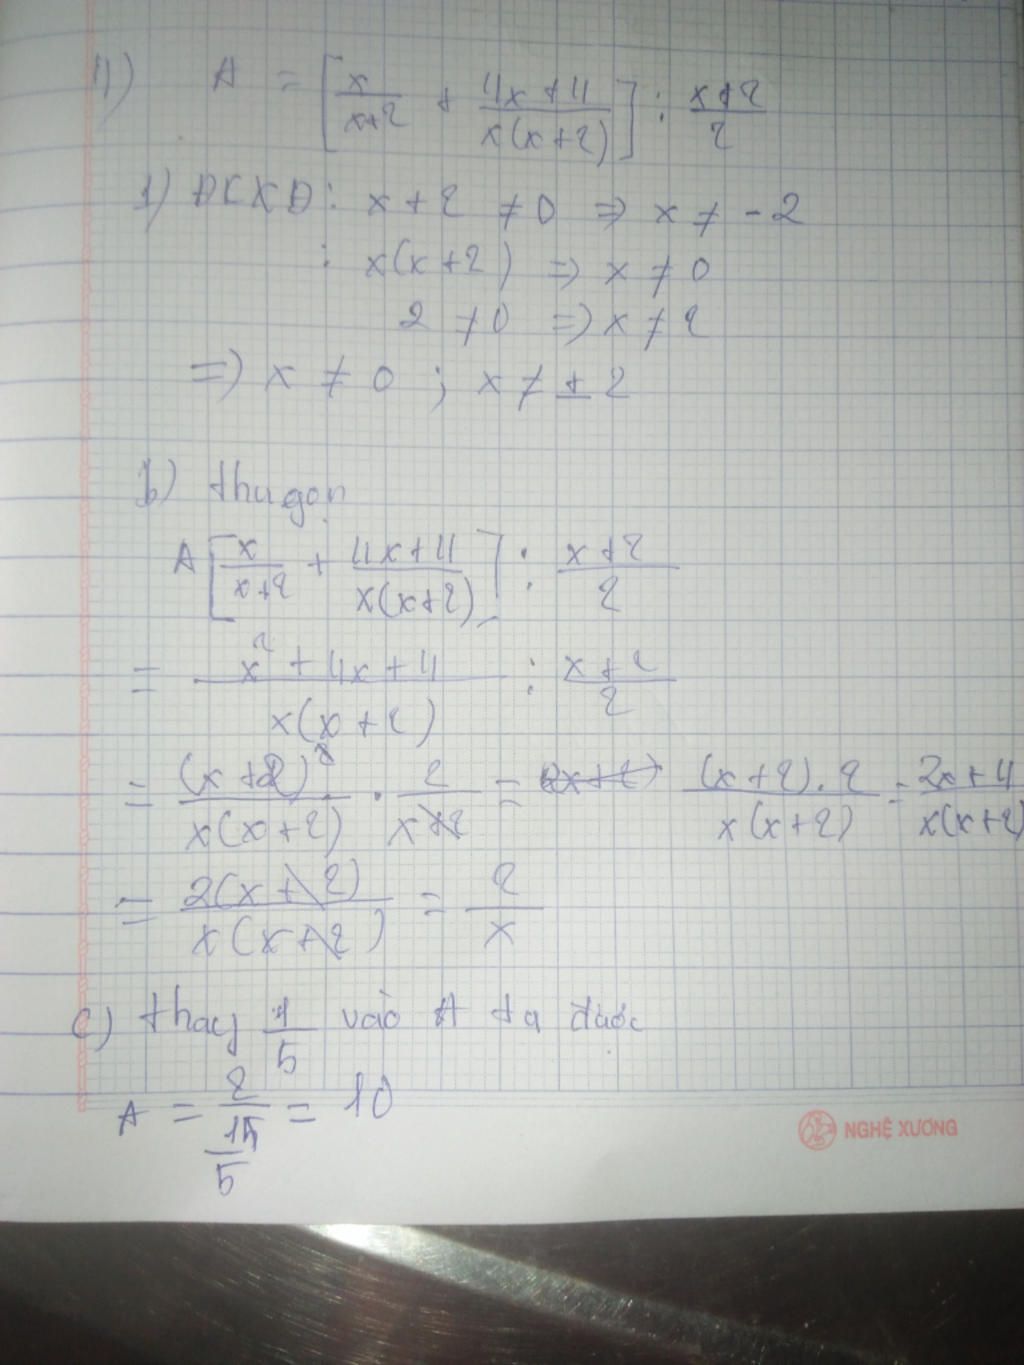 4) A = [x/(x+2) + (4x+4)/(x(x+2))] : (x+2)/2
1) ĐKXĐ: x+2 ≠0 ⇒ x ≠ -2
: x(x+2) ⇒ x ≠ 0
2 ≠0 ⇒ x ≠ 2
⇒ x ≠ 0 ; x ≠ ±2
b) thu gọn
A[x/(x+2) + (4x+4)/(x(x+2))] : (x+2)/2
= (x²+4x+4)/(x(x+2)) : (x+2)/2
= (x+2)²/(x(x+2)) · 2/(x+2) = ((x+2).2)/(x(x+2)) = (2x+4)/(x(x+2))
= 2(x+2)/(x(x+2)) = 2/x
c) thay 1/5 vào A ta được
A = 2/(1/5) = 10
NGHỆ XƯƠNG